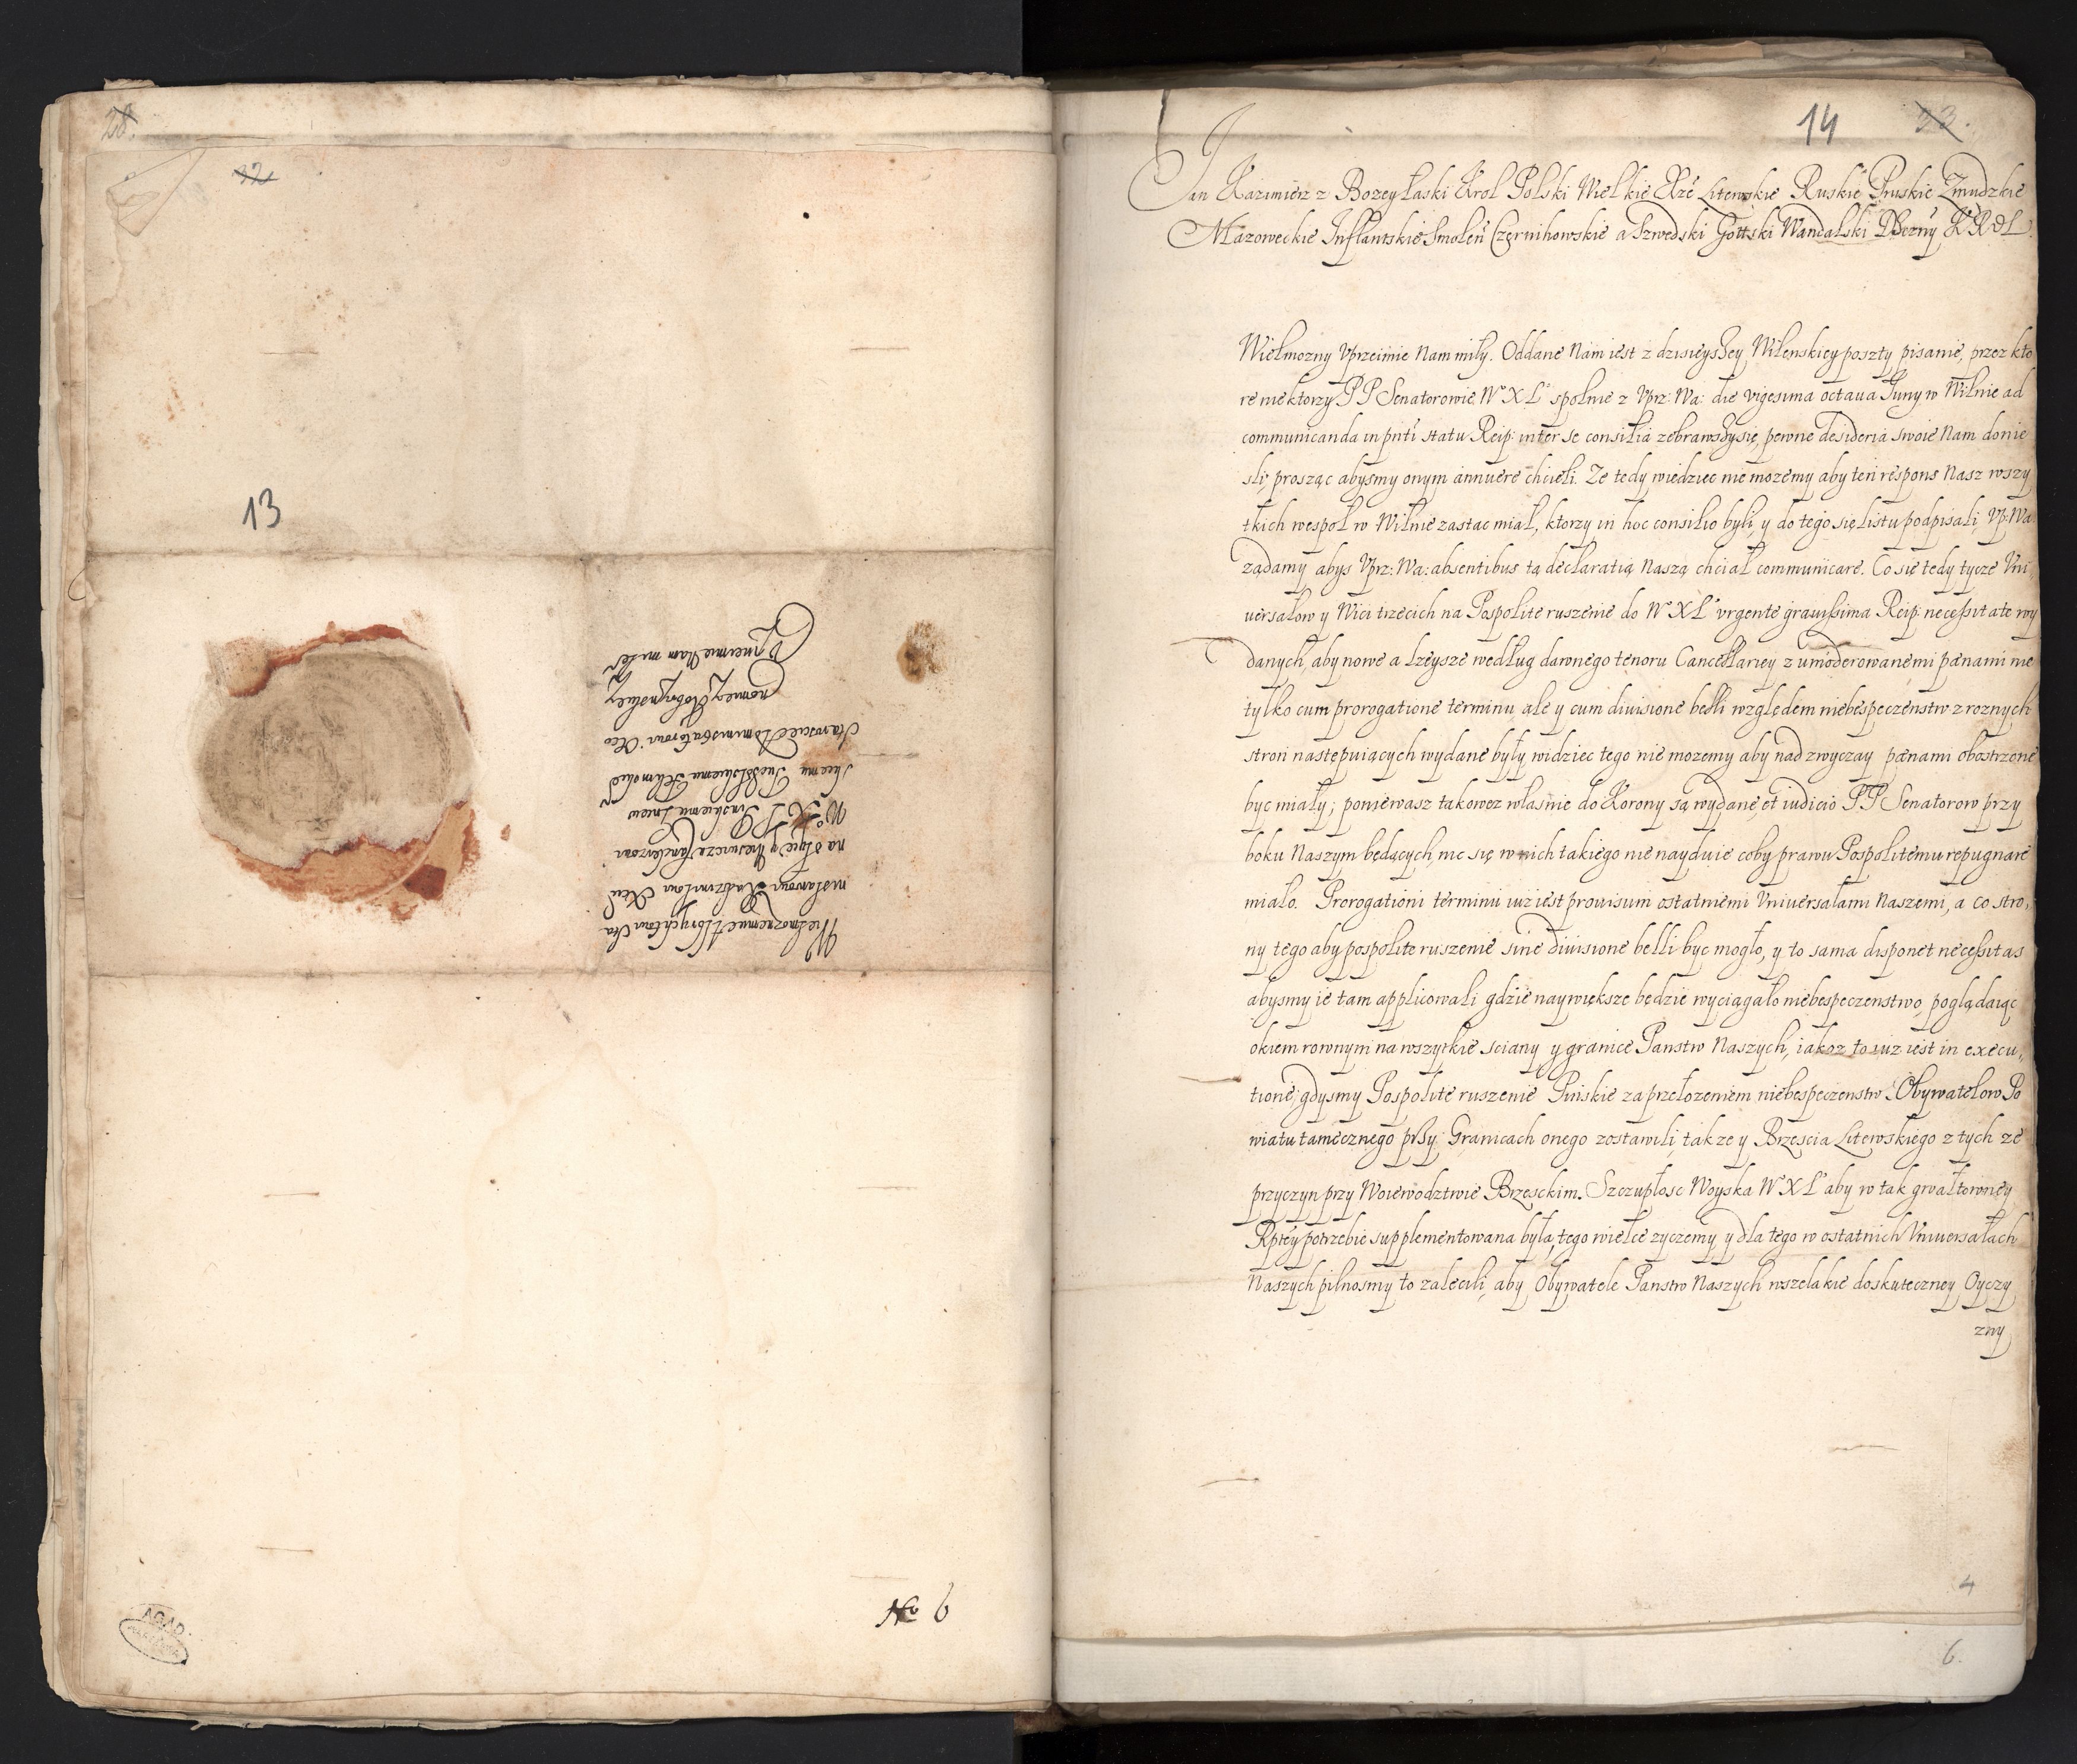 28.
32
13
Wielmoznemu Albrychtowi Sta
nisławowi Radziwiłowi Xciu
na Ołyce y Nieswiezu Canclerzowi
W° X L° Pinskiemu Gniew
skiemu Tucholskiemu
Staroscie Administratorowi Eco
nomiey Kobrynskiey
Vprzeimie Nam miłe°
N° 6
AGAD
14
33.
Jan Kazimierz z Bozey Łaski Krol Polski Wielkie Xże Litewskie Ruskie Pruskie Zmudzkie
Mazoweckie Inflantskie Smoleń Czernihowskie a Szwedski Gottski Wandalski Dziczny KROL.
Wielmozny Vprzeimie Nam miły. Oddane Nam iest z dzisieyszey Wilenskiey poszty pisanie, przez kto
re niektorzy PP Senatorowie W° X L° spolnie z Vprz: Wa: die vigesima octaua Iuny w Wilnie ad
communicanda in pnti statu Reip: inter se consilia zebrawszysię, pewne desideria swoie Nam donie
sli, prosząc abysmy onym annuere chcieli. Ze tedy wiedziec nie mozemy aby ten respons Nasz wszy
tkich wespoł w Wilnie zastac miał, ktorzy in hoc consilio byli, y do tego się listu podpisali, Vp: Wa
ządamy abys Vprz: Wa: absentibus tą declaratią Naszą chciał communicare. Co się tedy tycze Vni,
uersałow y Wici trzecich na Pospolite ruszenie do W° X L° vrgente grauissima Reip: necessitate wy
danych, aby nowe a lzeysze według dawnego tenoru Cancellariey z umoderowanemi pœnami nie
tylko cum prorogatione terminu, ale y cum diuisione belli względem niebespeczenstw z roznych
stron następuiących wydane były widziec tego nie mozemy aby nad zwyczay pœnami obostrzone
byc miały; poniewasz takowez własnie do Korony są wydane, et iudicio PP Senatorow przy
boku Naszym będących, nic się w nich takiego nie nayduie coby prawu Pospolitemu repugnare
miało. Prorogationi terminu iuz iest prouisum ostatniemi Vniuersałami Naszemi, a co stro,
ny tego aby pospolite ruszenie sine diuisione belli byc mogło, y to sama disponet necessitas
abysmy ie tam applicowali gdzie naywiększe będzie wyciągało niebespeczenstwo, poglądaiąc
okiem rownym na wszytkie sciany y granice Panstw Naszych, iakoz to iuz iest in execu,
tione, gdysmy Pospolite ruszenie Pinskie za przełozeniem niebespeczenstw Obywatelow Po
wiatu tamecznego przy Granicach onego zostawili, takze y Brzescia Litewskiego z tych ze
przyczyn przy Woiewodztwie Brzesckim. Szczupłosc Woyska W° X L° aby w tak gwałtowney
Rptey potrzebie supplementowana była, tego wielce zyczemy, y dla tego w ostatnich Vniuersałach
Naszych pilnosmy to zalecili, aby Obywatele Panstw Naszych wszelakie do skuteczney Oyczy
zny
4
6.